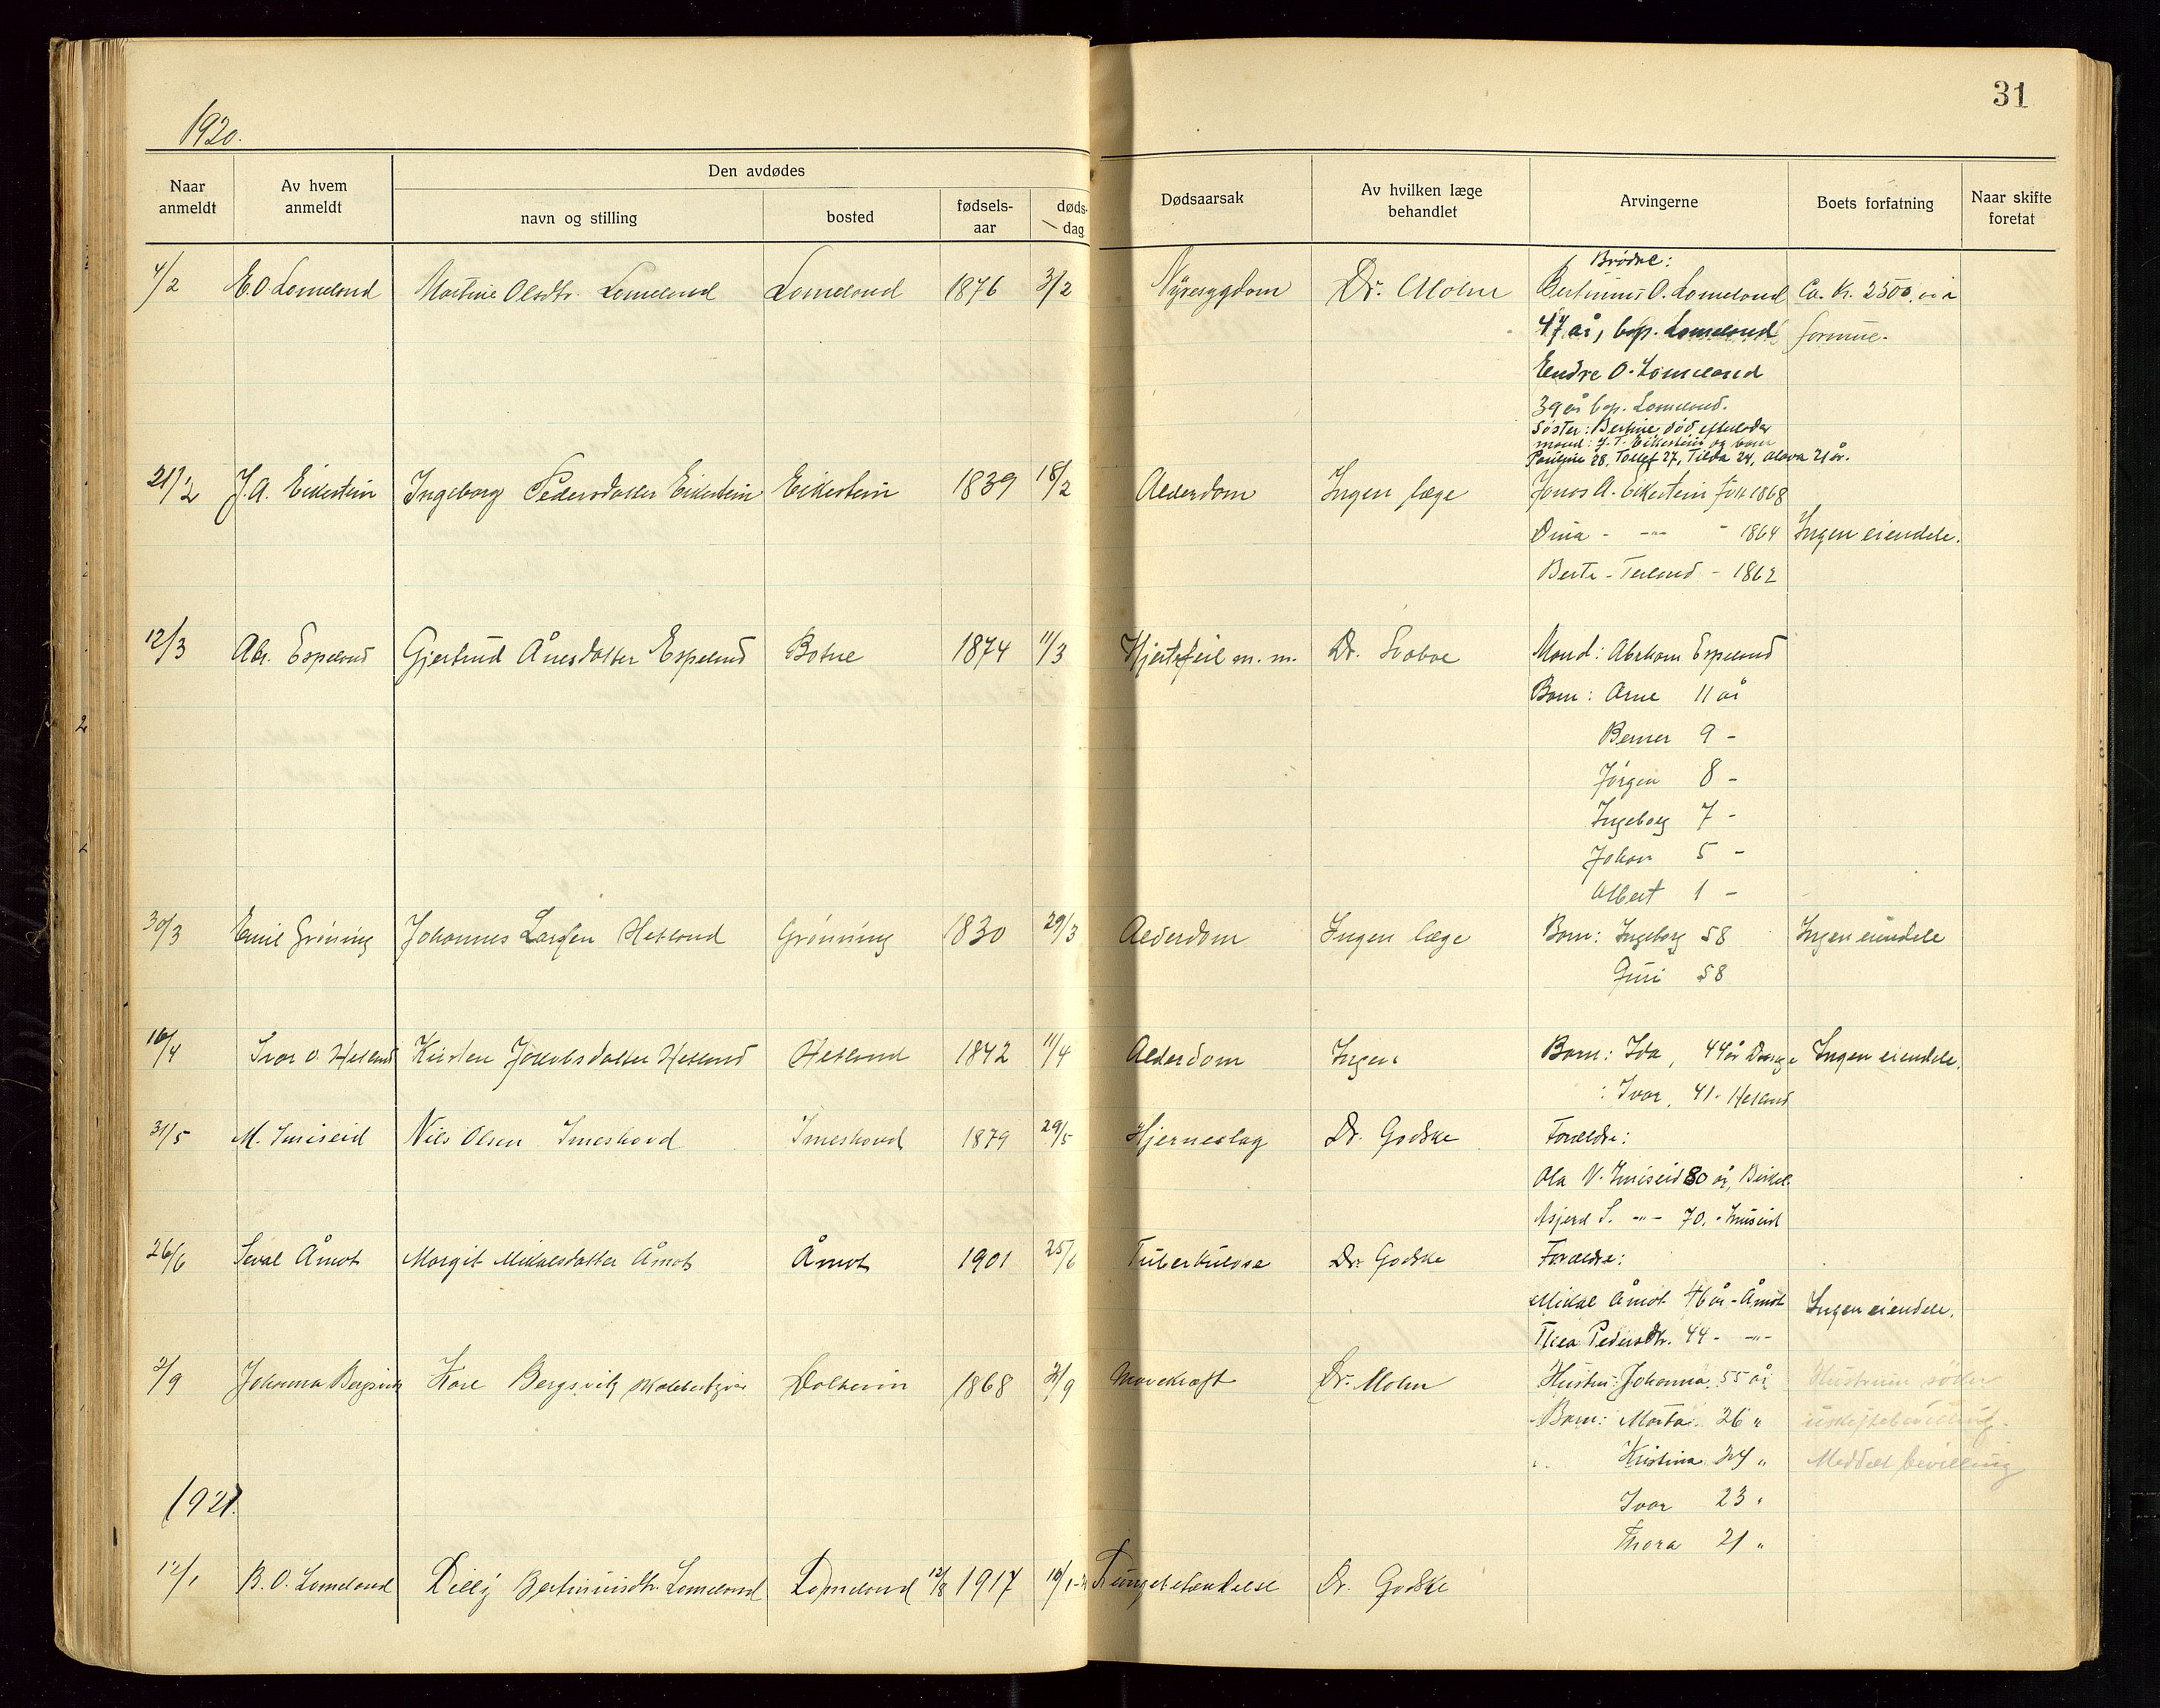 31
1920.
Naar anmeldt
Av hvem anmeldt
Den avdødes
navn og stilling
bosted
fødsels-aar
døds-dag
Dødsaarsak
Av hvilken læge behandlet
Arvingerne
Boets forfatning
Naar skifte foretat
Brødre:
4/2 E. O Lomeland Martine Olsdtr. Lomeland Lomeland 1876 3/2 Nyresygdom Dr. Molne O. Lomeland Ca. Kr. 2500, i
47 år, bop. Lomeland formue.
Endre O. Lomeland
39 år bop. Lomeland.
Søster: Bertine død, efterlader
mand: J. T. Eikestein og barn
Pauline 28, Tollef 27, Tilda 24, Olava 21 år.
21/2 J. A. Eikestein Ingeborg Pedersdatter Eikestein Eikestein 1839 18/2 Alderdom Ingen læge Jonas A. Eikestein født 1868
Dina - -"- - 1864 Ingen eiendele.
Berte - - 1862
12/3 Abr. Espeland Gjertrud Ånesdatter Espeland Botne 1874 11/3 Hjertefeil m. m. Dr. Svaboe Mand: Abraham Espeland
Barn: Arne 11 år
Berner 9 -
Jørgen 8 -
Ingeborg 7 -
Johan 5 -
Albert 1 -
30/3 Emil Grøning Johannes Larsen Hetland Grønning 1830 29/3 Alderdom Ingen læge Barn: Ingeborg 58 Ingen eiendele
Guri 58
16/4 Ivar O. Hetland Kirsten Jakobsdatter Hetland Hetland 1842 11/4 Alderdom Ingen Barn: Ida, 44 år Ingen eiendele.
: Ivar, 41 - Hetland
31/5 M. Imeseid Nils Olsen Imeshoud Imeshoud 1879 29/5 Hjerneslag Dr. Godske Forældre:
Ola V. Imeseid 80 år,
S. -"- 70. - Imeseid
26/6 Seval Åmot Margit Mikalsdatter Åmot Åmot 1901 25/6 Tuberkulose Dr. Godske Forældre:
Mikal Åmot 46 år - Åmot Ingen eiendele.
Thea Pedersdtr. 44 - -"-
2/9 Johanna Bergsvik Kare Bergsvik Dalheim 1868 2/9 Mavekræft Dr. Molne Hustru: Johanna 55 år Hustruen søker
Barn: Marta 26 " uskiftebevilling.
Kristina 24 " Meddelt bevilling
Ivar 23 "
Thora 21 "
1921.
12/1 B. O. Lomeland Lomeland Lomeland 12/8 1917 10/1 Lungebetændelse Dr. Godske